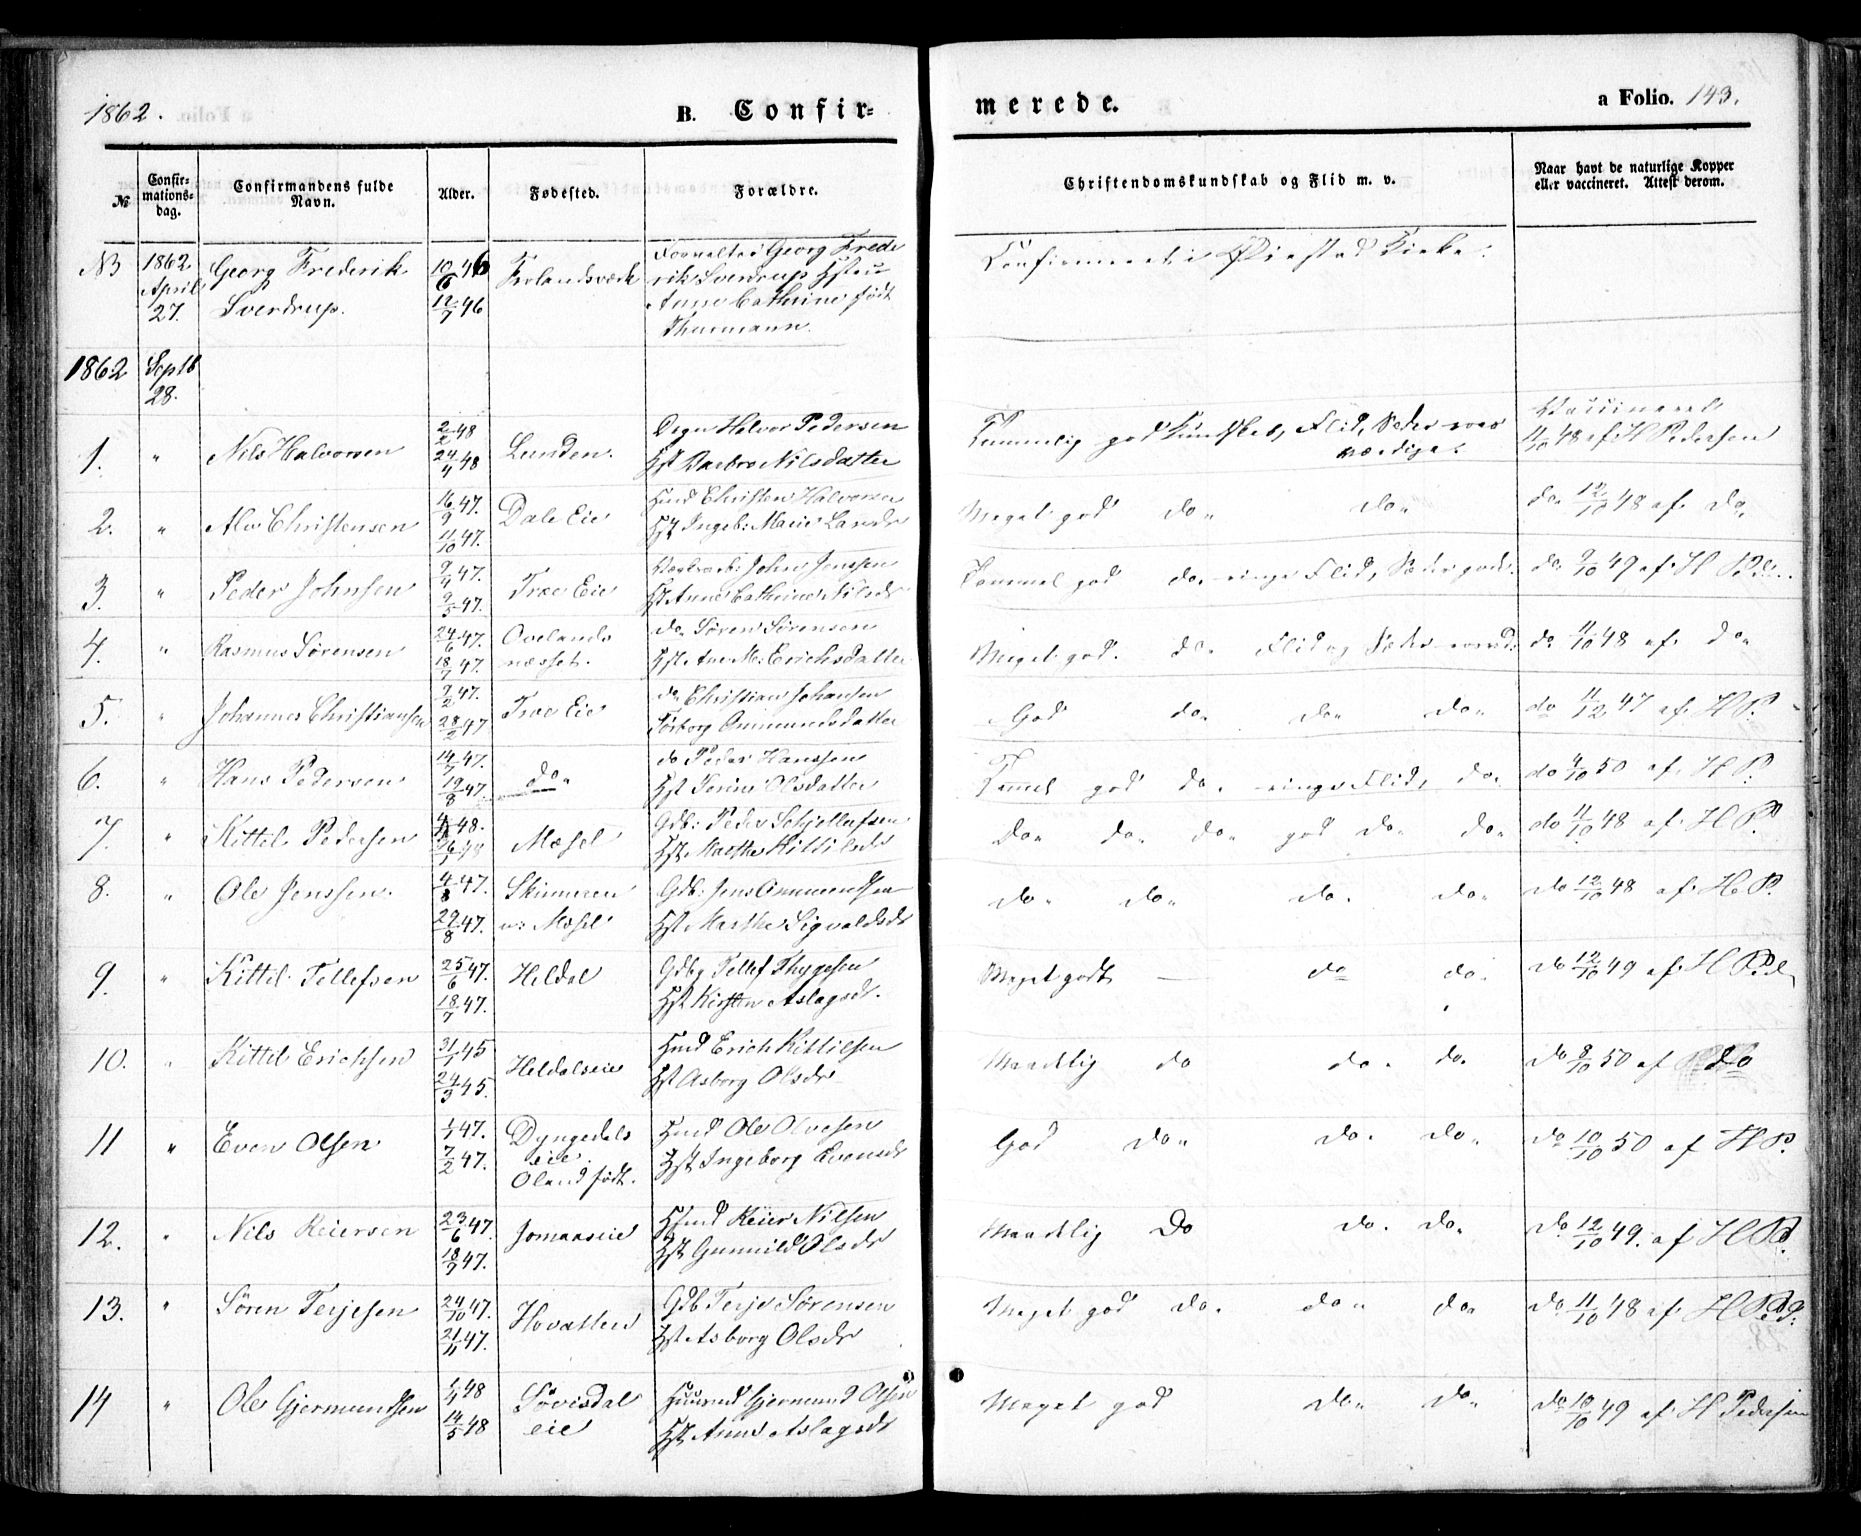 1862.
B. Confir-
merede.
a Folio. 143.
№
Confir-
mations-
dag.
Confirmandens fulde
Navn.
Alder.
Fødested.
Forældre.
Christendomskundskab og Flid m. v.
Naar havt de naturlige Kopper
eller vaccineret. Attest derom.
NB 1862 April 27. Georg Frederik Sverdrup. 10/6 46 12/7 46 Frolandsværk
Forvalter Georg Frede
rik Sverdrup Hstru
Anne Cathrine født
Thuemann.
Confirmeret i Øiestad Kirke.
1862 Septb 28.
1. " Nils Halvorsen 2/2 48 24/4 48 Lunden.
Halvor Pedersen
Hst Barbro Nilsdatter
Temmelig god Kundskab, Flid, Sæder roes
værdige.
Vaccineret
11/10 48 af H Pedersen
2. " Alv Christensen 16/9 47. 11/10 47. Dale Eie
Hmd Christen Halvorsen
Hst Ingeb: Marie Larsdr
Meget god do. do.
do 12/10 48 af do.
3. " Peder Johnsen 9/4 47. 9/5 47. Træe Eie
John Jenssen
Hst Anne Cathrine Nilsdr
Temmel god do. ringe Flid, Sæder gode.
do. 9/10 49 af H Ped.
4. " Rasmus Sørensen 24/6 47. 18/7 47. Ovelands
næsset.
do Søren Sørensen
Hst. Ane M: Erichsdatter
Meget god. do. Flid og Sæder roesv.
do 11/10 48 af do
5. " Johannes Christiansen 7/2 47. 28/2 47 Træe Eie
do Christian Johansen
Torborg Ommundsdatter
God do. do. do.
do 11/12 47 af H P
6. " Hans Pedersen 14/7 47. 19/8 47. do
do Peder Hanssen
Hst Torine Olsdatter
Temmel god do. ringe Flid, do.
do 4/10 50 af H P.
7. " Kittil Pedersen 48. 26/1 48 Mæsel
Gdb: Peder Schjellefsen
Hst Marthe Kittilsdr
do. do. do. god do. do.
do 11/10 48 af H P.
8. " Ole Jenssen. 4/8 47. 29/8 47. Skimmeren
u: Mæsel
Gdb: Jens Ommundsen
Hst Marthe Sigvaldsdr
do. do. do. do.
do 12/10 48 af H. P.
9. " Kittil Tellefsen 25/6 47. 18/7 47. Heldal
Gdbg Tellef Thygesen
Hst Kirsten Aslagsd.
Meget godt — do do.
do 12/10 49 af H Ped.
10. " Kittil Erichsen 31/1 45 24/3 45. Heldalseie
Hmd Erich Kittilsen
Hst Asborg Olsdr
Maadelig do do. do.
do 8/10 50 af do
11 " Even Olsen 1/1 47. 7/2 47. Dyngedals
eie.
Oland født.
Hmd Ole Olvesen
Hst Ingeborg Evensdr
God do. do. do.
do 10/10 50 af H P.
12. " Nils Reiersen 23/6 47. 18/7 47. Jomaaseie
Hmd Reier Nilsen
Hst Gunnild Olsdr
Maadelig do do. do.
do 12/10 49. af H Pd.
13. " Sören Terjesen 24/10 47. 21/11 47. Hovatten
Gdb Terje Sørensen
Hst Asborg Olsdr
Meget god do. do. do.
do. 11/10 48 af H Ped.
14 " Ole Gjermundsen 1/4 48 14/5 48 Søvisdal
eie
Huusmd Gjermund Olsen
Hst Anne Aslagsdr
Meget god do. do.
do 10/10 49 af H Pedersen